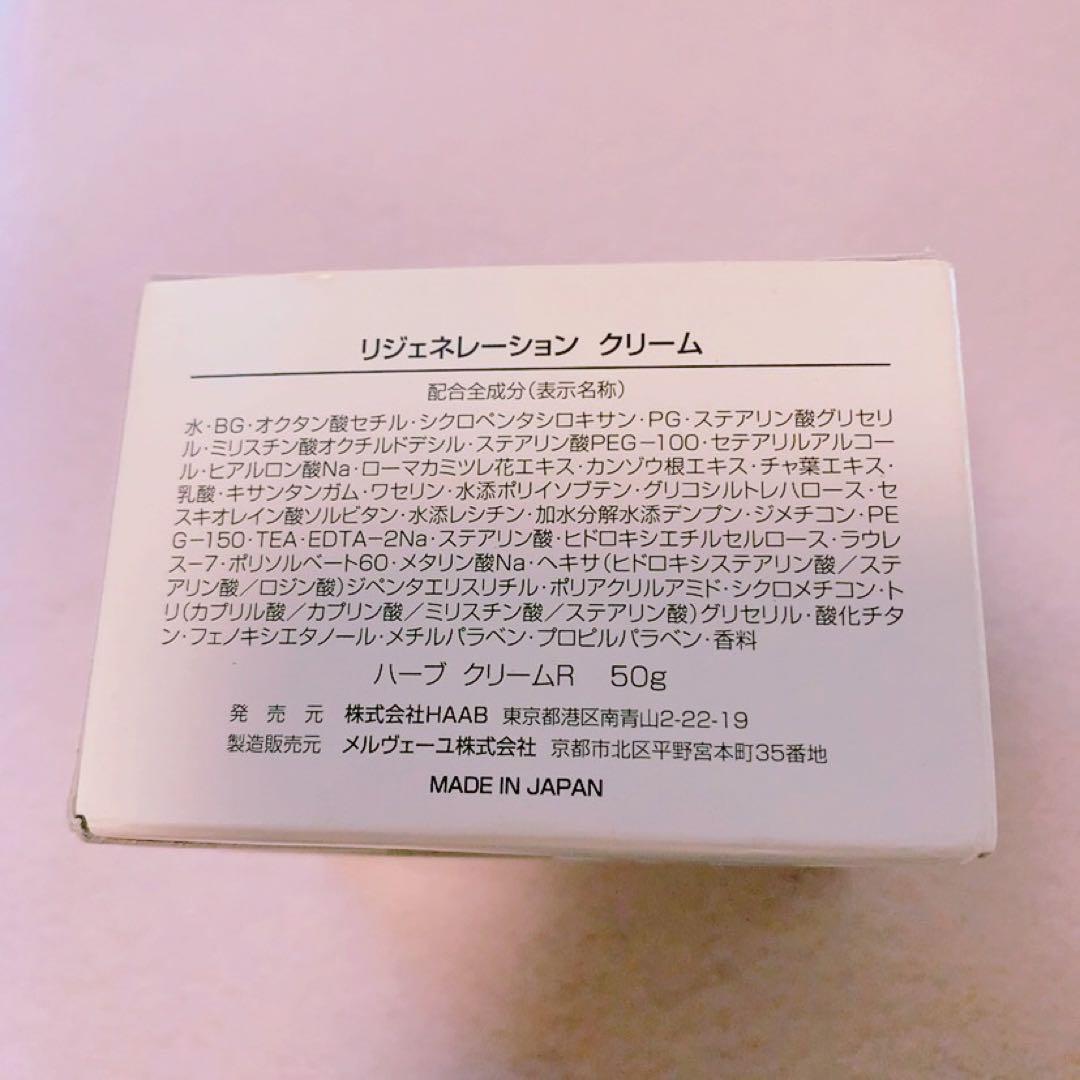 リジェネレーション クリーム
配合全成分(表示名称)
水・BG・オクタン酸セチル・シクロペンタシロキサン・PG・ステアリン酸グリセリ
ル・ミリスチン酸オクチルドデシル・ステアリン酸PEG-100・セテアリルアルコー
ル・ヒアルロン酸Na・ローマカミツレ花エキス・カンゾウ根エキス・チャ葉エキス・
乳酸・キサンタンガム・ワセリン・水添ポリイソブテン・グリコシルトレハロース・セ
スキオレイン酸ソルビタン・水添レシチン・加水分解水添デンプン・ジメチコン・PE
G-150・TEA・EDTA-2Na・ステアリン酸・ヒドロキシエチルセルロース・ラウレ
ス-7・ポリソルベート60・メタリン酸Na・ヘキサ(ヒドロキシステアリン酸/ステ
アリン酸/ロジン酸)ジペンタエリスリチル・ポリアクリルアミド・シクロメチコン・ト
リ(カプリル酸/カプリン酸/ミリスチン酸/ステアリン酸)グリセリル・酸化チタ
ン・フェノキシエタノール・メチルパラベン・プロピルパラベン・香料
ハーブ クリームR 50g
発売元 株式会社HAAB 東京都港区南青山2-22-19
製造販売元 メルヴェーユ株式会社 京都市北区平野宮本町35番地
MADE IN JAPAN